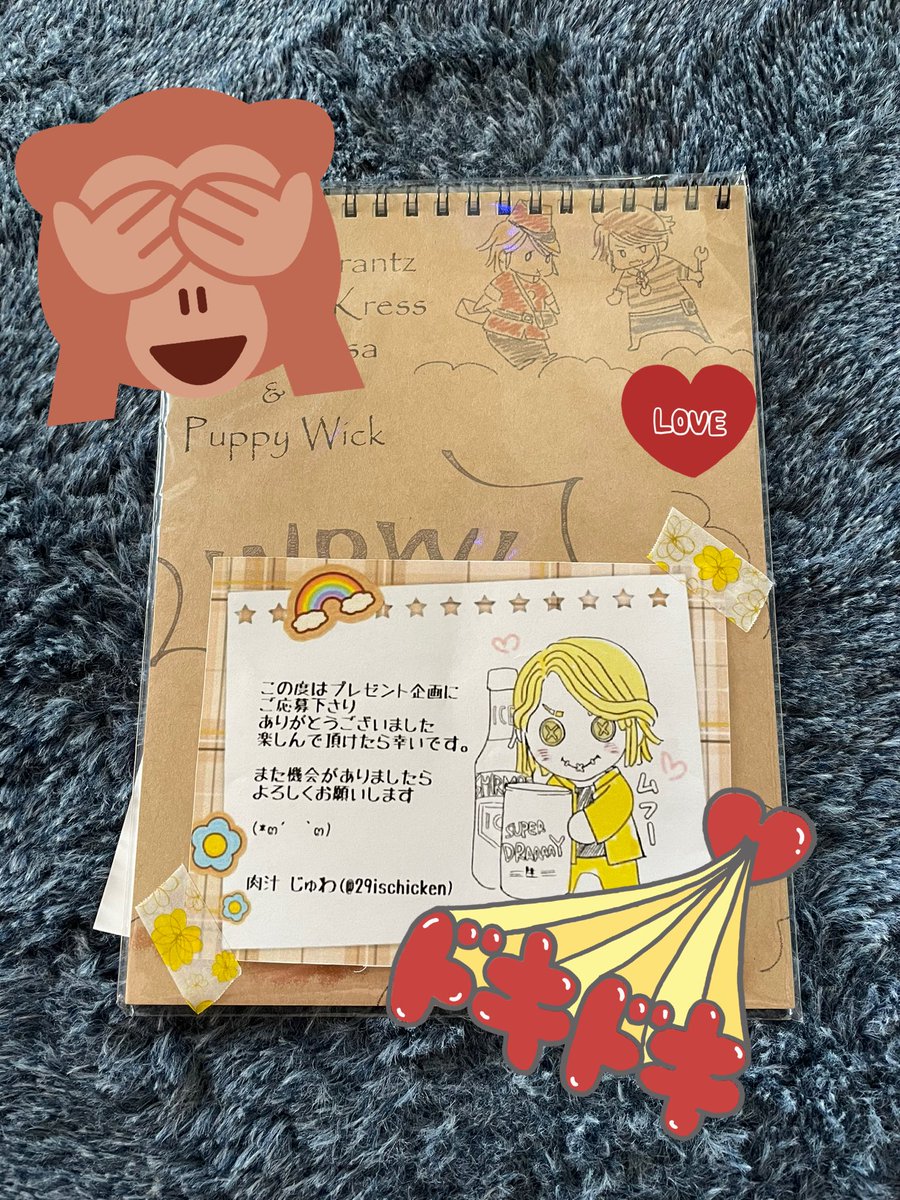 rantz
Kress
sa
&
Puppy Wick
LOVE
この度はプレゼント企画に
ご応募下さり
ありがとうございました
楽しんで頂けたら幸いです。
また機会がありましたら
よろしくお願いします
肉汁 じゅわ(@29ischicken)
ICE
SUPER
DRAAAAY
ムフー
ドキドキ